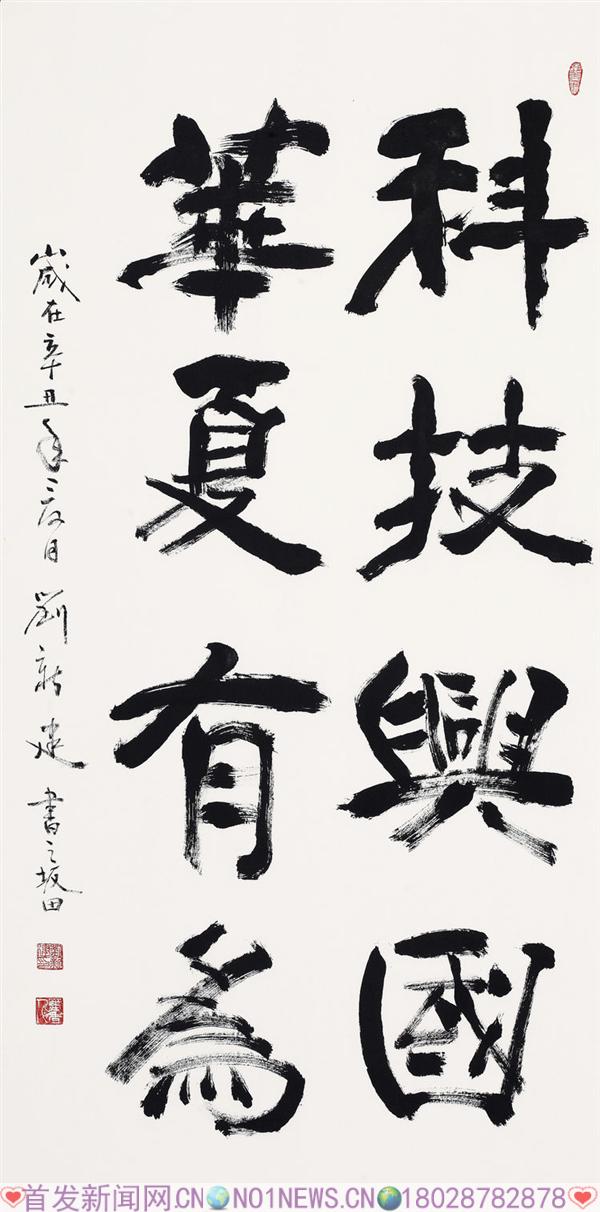 科技興國
華夏有為
歲在辛丑年三月 劉新建 書之坂田
首发新闻网.CN NO1NEWS.CN 18028782878